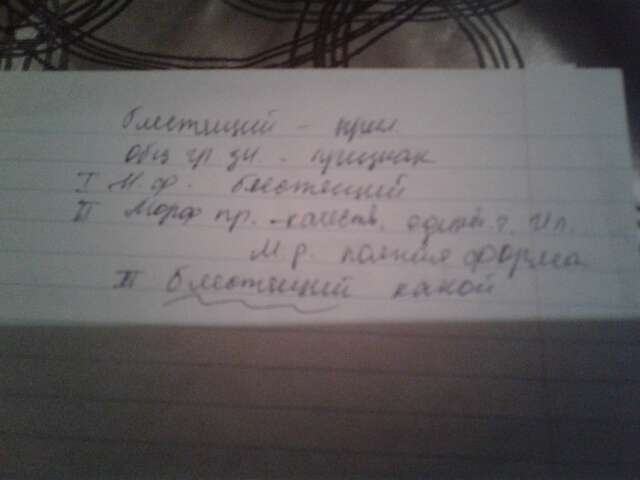 блестещий - прил
Общ гр зн. - признак
I Н. ф. блестещий
II Морф пр. - качеств, един. ч. И п.
М р. полная форма
III блестещий какой